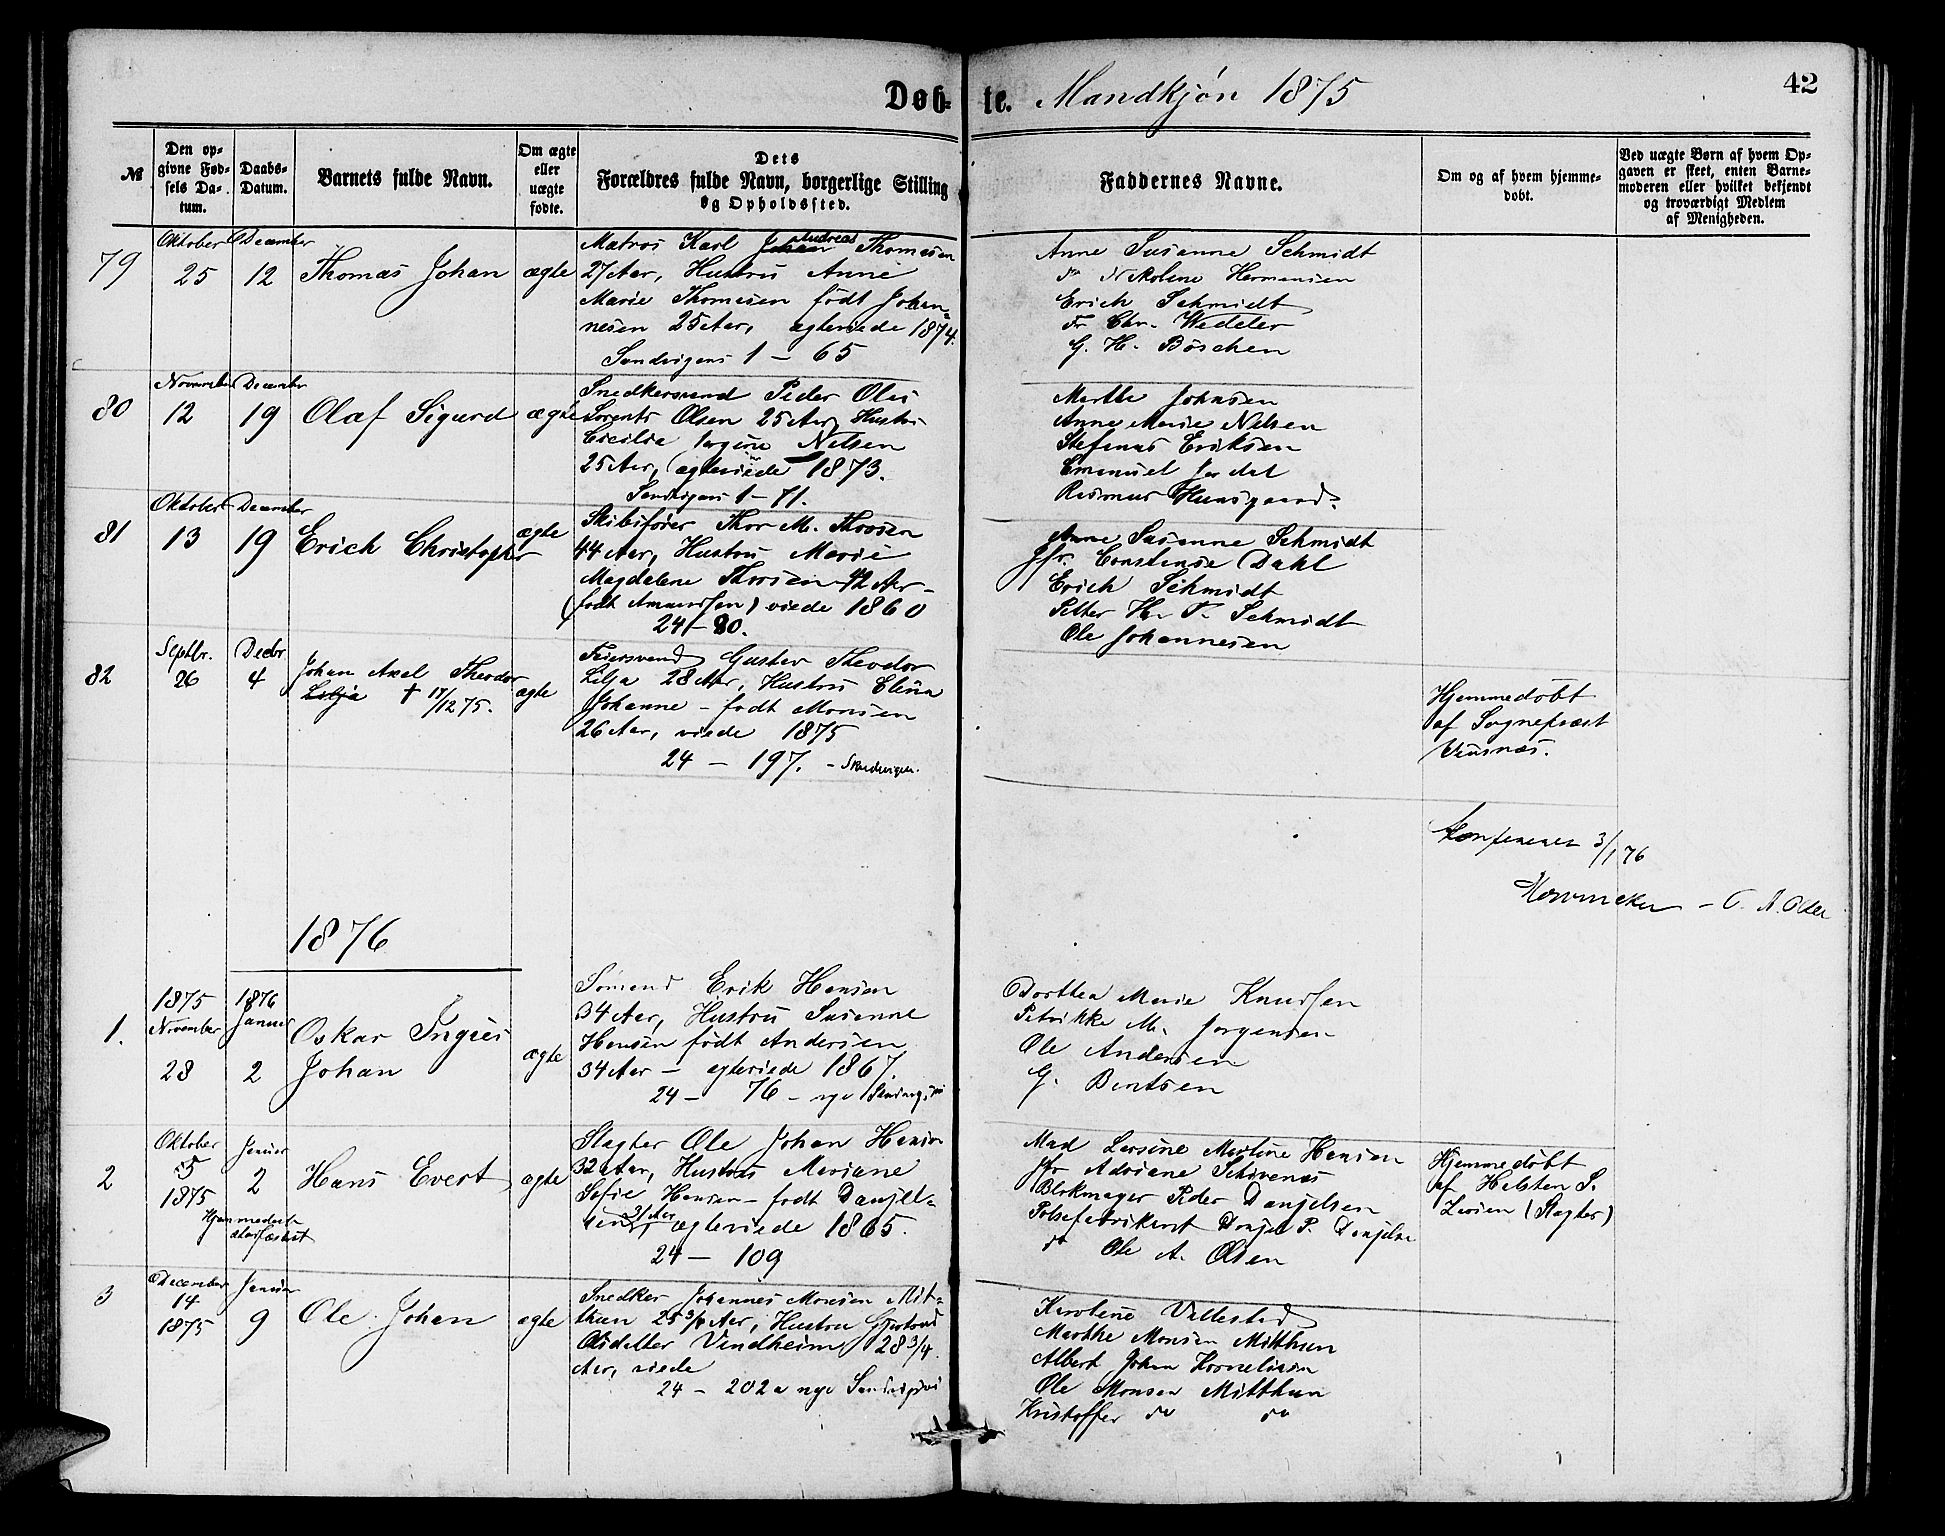 Døb-te. Mandkjøn 1875
42
№
Den opgivne Fødsels Datum.
Daabs-Datum.
Barnets fulde Navn.
Om ægte eller uægte fødte.
Dets Forældres fulde Navn, borgerlige Stilling og Opholdssted.
Faddernes Navne.
Om og af hvem hjemmedøbt.
Ved uægte Børn af hvem Opgaven er skeet, enten Barnemoderen eller hvilket bekjendt og troværdigt Medlem af Menigheden.
79
Oktober 25
December 12
Thomas Johan
ægte
Matros Karl Johan Andreas Thomesen
27 Aar, Hustru Anne
Marie Thomesen født Johan-
nesen 25 Aar, ægteviede 1874.
Sandvigens 1 – 65
Anne Susanne Schmidt
Fr Nikoline Hermansen
Erich Schmidt
Fr. Chr. Wedeler
G. H. Böschen
80
November 12
December 19
Olaf Sigurd
ægte
Snedkersvend Peder Olai
Lorents Olsen 25 Aar, Hustru
Cicilie Nilsen
25 Aar, ægteviede 1873.
Sandvigens 1 – 71.
Marthe Johnsen
Anne Marie Nilsen
Stefanus Eriksen
Emanuel
Rasmus
81
Oktober 13
December 19
Erich Christopher
ægte
Skibsfører Thor M. Thorsen
44 Aar, Hustru Marie
Magdalene Thorsen 42 Aar
(født Amundsen) viede 1860
24 – 80.
Anne Susanne Schmidt
Jfr. Constense Dahl
Erich Schmidt
Petter H. P. Schmidt
Ole Johannesen
82
Septbr. 26
Decbr 4
Johan Axel Theodor
Lilja † 17/12 75.
ægte
Feiersvend Gustav Theodor
Lilja 28 Aar, Hustru Elina
Johanne – født Monsen
26 Aar, viede 1875
24 – 197. – Sandvigen.
Hjemmedøbt
af Sognepræst
Konfereret 3/1 76
1876
1.
1875 November 28
1876 Januar 2
Oskar Ingus
Johan
ægte
Sømand Erik Hansen
34 Aar, Hustru Susanne
Hansen født Andersen
34 Aar – ægteviede 1867.
24 – 76 – nye
Dorthea Marie Knudsen
Petrikke M. Jørgensen
Ole Andersen
G. Bentsen
2
Oktober 5 1875
Januar 2
Hans Evert
ægte
Slagter Ole Johan Hansen
32 Aar, Hustru Mariane
Sofie Hansen – født Danjel-
sen, 31 Aar ægteviede 1865.
24 – 109
Mad Larsine Martine Hansen
Jfr Adriane Schivenes
Blokmager Peder Danjelsen
Pølsefabrikant Danjel P. Danjelsen
do Ole A. Olsen
Hjemmedøbt
af Helsten S.
Larsen (Slagter)
3
December 14 1875
Januar 9
Ole Johan
ægte
Snedker Johannes Monsen Mit-
thun 25 3/4 Aar, Hustru Gjertrud
Olsdatter Vindheim 28 3/4
Aar, viede
24 – 202a nye
Karolene Vallestad
Marthe Monsen Mitthun
Albert Johan Kornelisen
Ole Monsen Mitthun
Kristoffer do do